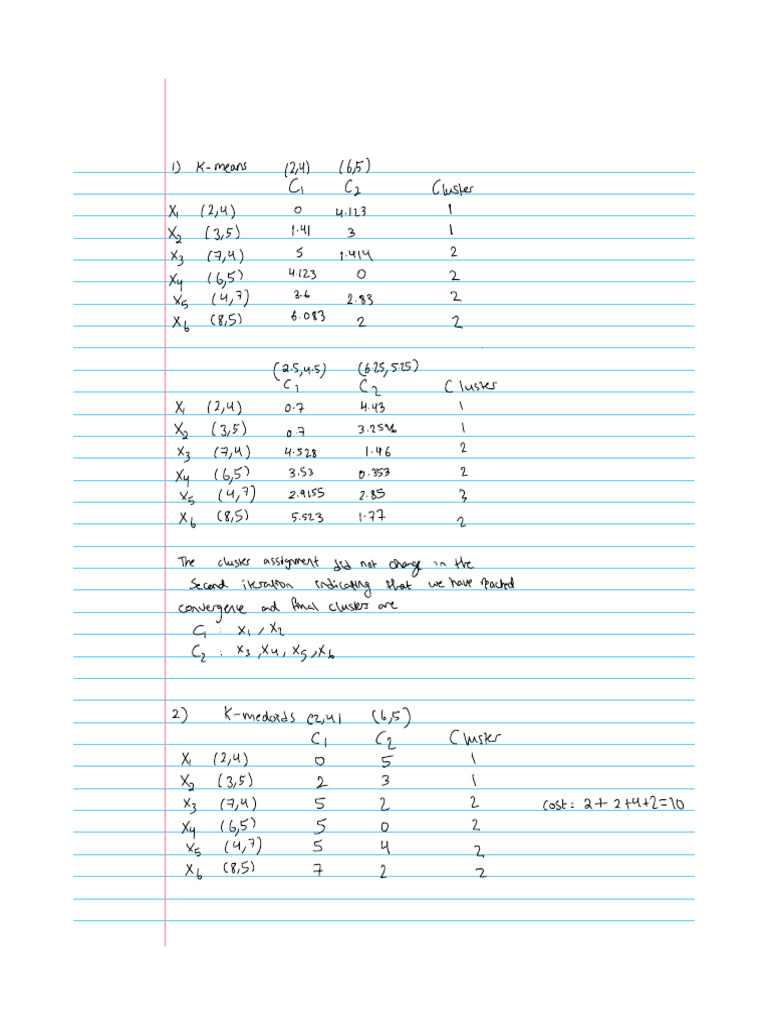 1) K-means (2,4) (6,5)
C1 C2 Cluster
X1 (2,4) 0 4.123 1
X2 (3,5) 1.41 3 1
X3 (7,4) 5 1.414 2
X4 (6,5) 4.123 0 2
X5 (4,7) 3.6 2.83 2
X6 (8,5) 6.083 2 2
(2.5,4.5) (6.25,5.25)
C1 C2 Cluster
X1 (2,4) 0.7 4.43 1
X2 (3,5) 0.7 3.2596 1
X3 (7,4) 4.528 1.46 2
X4 (6,5) 3.53 0.353 2
X5 (4,7) 2.9155 2.85 3
X6 (8,5) 5.523 1.77 2
The cluster assignment did not change in the
Second iteration indicating that we have reached
convergence and final clusters are
C1 : X1, X2
C2 : X3, X4, X5, X6
2) K-medoids (2,4) (6,5)
C1 C2 Cluster
X1 (2,4) 0 5 1
X2 (3,5) 2 3 1
X3 (7,4) 5 2 2 cost: 2+2+4+2=10
X4 (6,5) 5 0 2
X5 (4,7) 5 4 2
X6 (8,5) 7 2 2